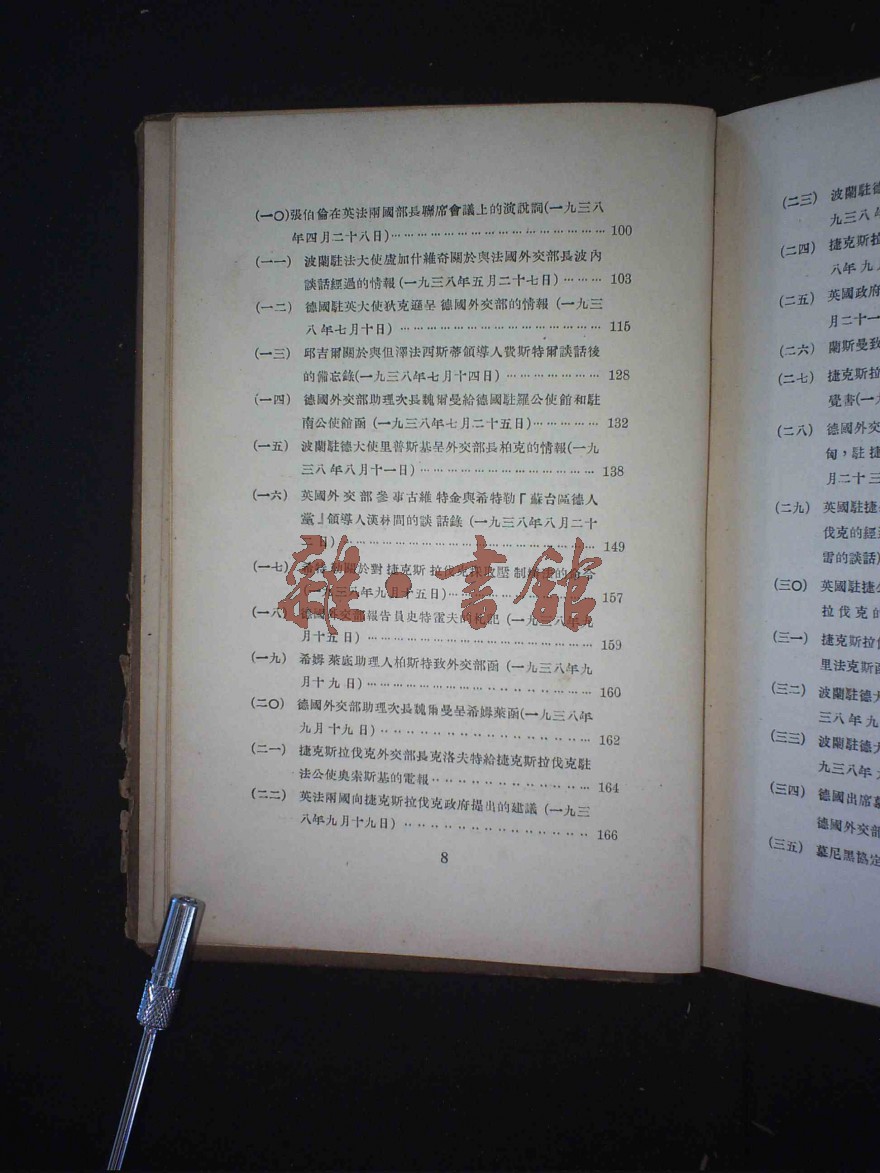 (一〇)張伯倫在英法兩國部長聯席會議上的演說詞(一九三八
年四月二十八日)…………………………………………… 100
(一一) 波蘭駐法大使盧加什維奇關於與法國外交部長波內
談話經過的情報(一九三八年五月二十七日)……… 103
(一二) 德國駐英大使狄克遜呈德國外交部的情報(一九三
八年七月十日)………………………………………… 115
(一三) 邱吉爾關於與但澤法西斯蒂領導人費斯特爾談話後
的備忘錄(一九三八年七月十四日)………………… 128
(一四) 德國外交部助理次長魏爾曼給德國駐羅公使館和駐
南公使館函(一九三八年七月二十五日)…………… 132
(一五) 波蘭駐德大使里普斯基呈外交部長柏克的情報(一九
三八年八月十一日)…………………………………… 138
(一六) 英國外交部參事古維特金與希特勒『蘇台區德人
黨』領導人漢林間的談話錄(一九三八年八月二十
三日)…………………………………………………… 149
(一七) 希特勒關於對捷克斯拉伐克採取壓制 的命令
(一九三八年九月十五日)…………………………… 157
(一八) 德國外交部報告員史特雷夫的札記(一九三八年九
月十五日)……………………………………………… 159
(一九) 希姆萊底助理人柏斯特致外交部函(一九三八年九
月十九日)……………………………………………… 160
(二〇) 德國外交部助理次長魏爾曼呈希姆萊函(一九三八年
九月十九日)…………………………………………… 162
(二一) 捷克斯拉伐克外交部長克洛夫特給捷克斯拉伐克駐
法公使奧索斯基的電報………………………………… 164
(二二) 英法兩國向捷克斯拉伐克政府提出的建議(一九三
八年九月十九日)……………………………………… 166
8
雜·書館
(二三) 波蘭駐德
九三八年
(二四) 捷克斯拉
八年九月
(二五) 英國政府
月二十一
(二六) 蘭斯曼致
(二七) 捷克斯拉
覺書(一九
(二八) 德國外交
甸，駐捷
月二十三
(二九) 英國駐捷
伐克的經
雷的談話)
(三〇) 英國駐捷
拉伐克的
(三一) 捷克斯拉伐
里法克斯
(三二) 波蘭駐德大
三八年九
(三三) 波蘭駐德大
九三八年
(三四) 德國出席慕
德國外交部
(三五) 慕尼黑協定